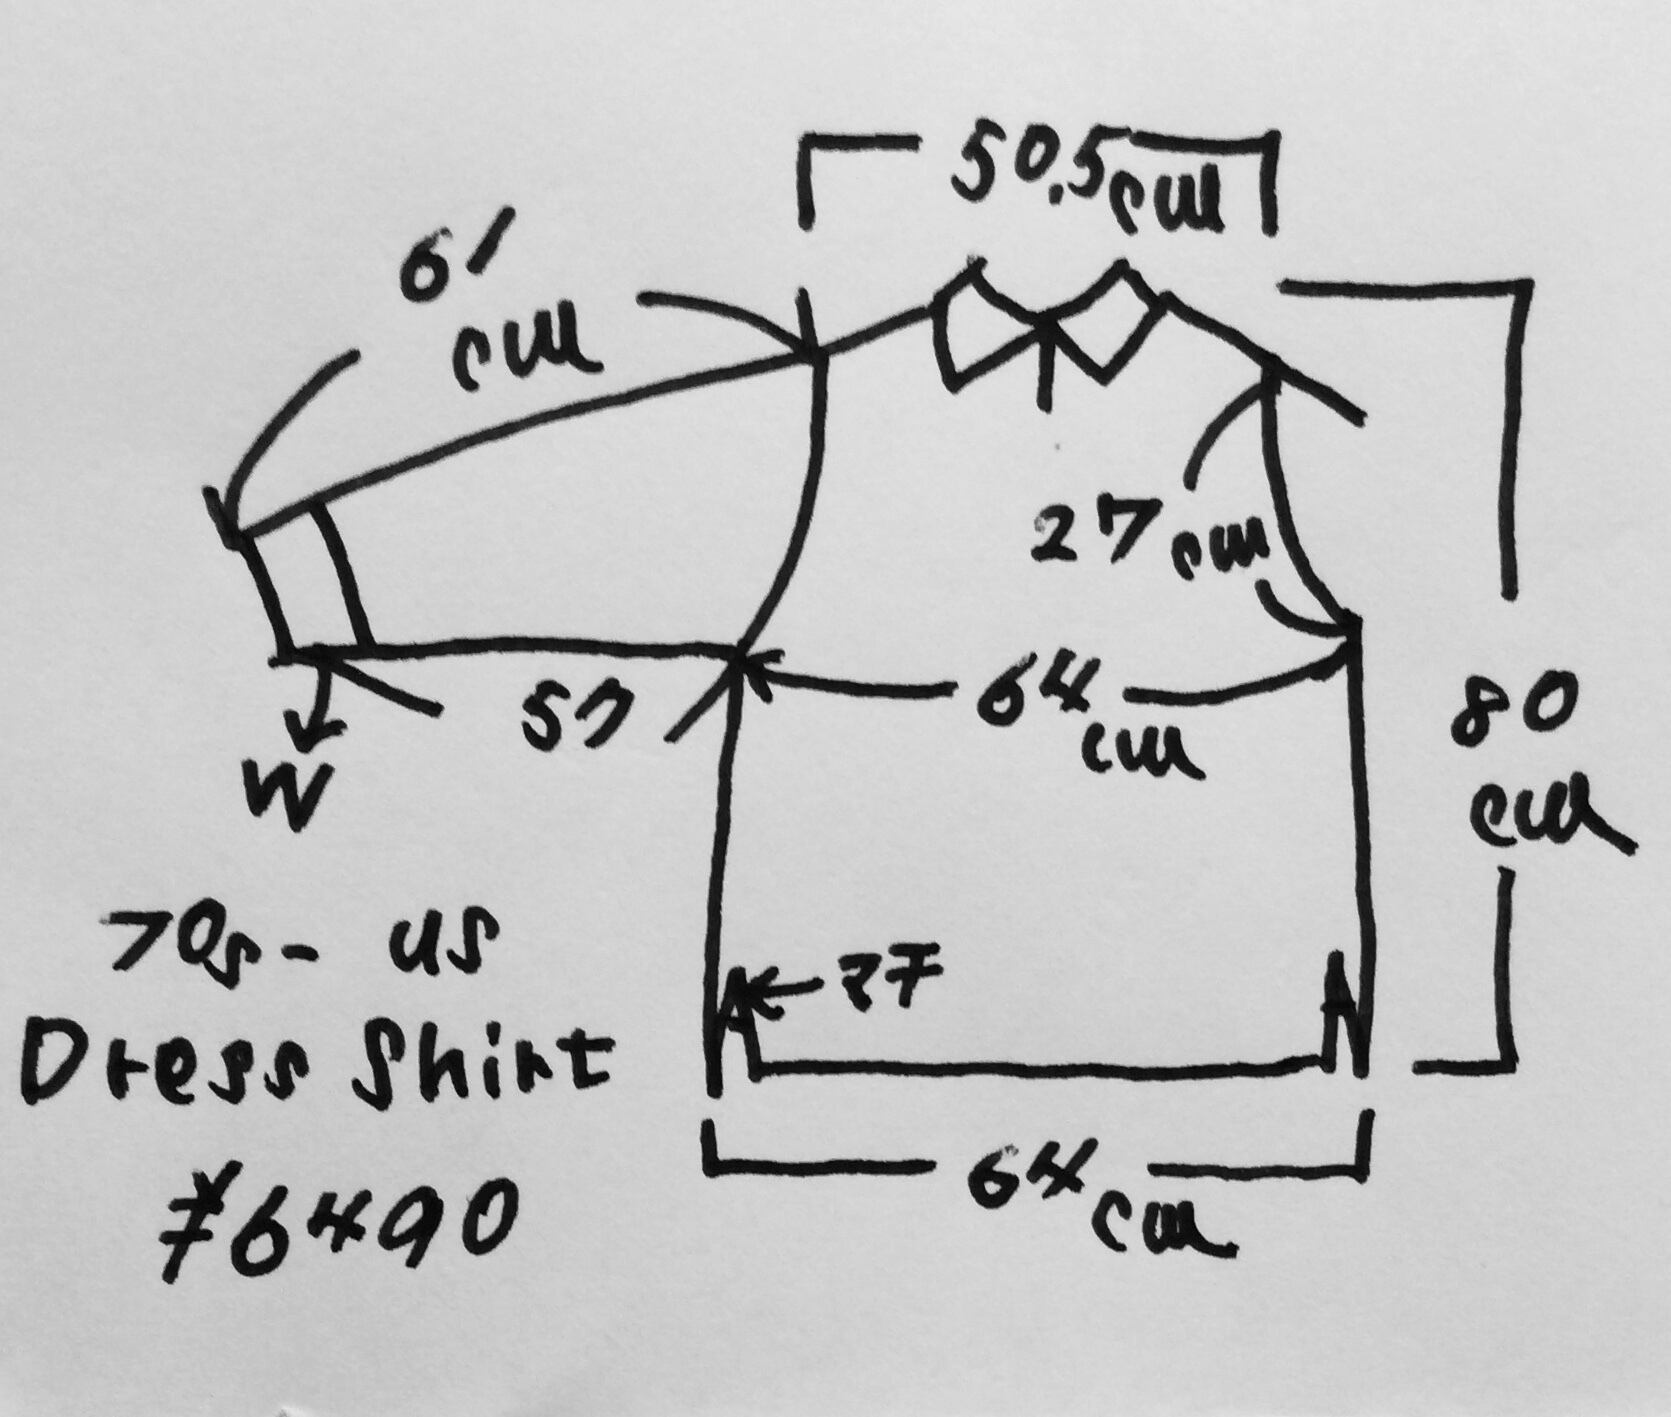 50.5cm
61
cm
27cm
57
64
cm
80
cm
W
70s - us
Dress Shirt
¥6490
64
cm